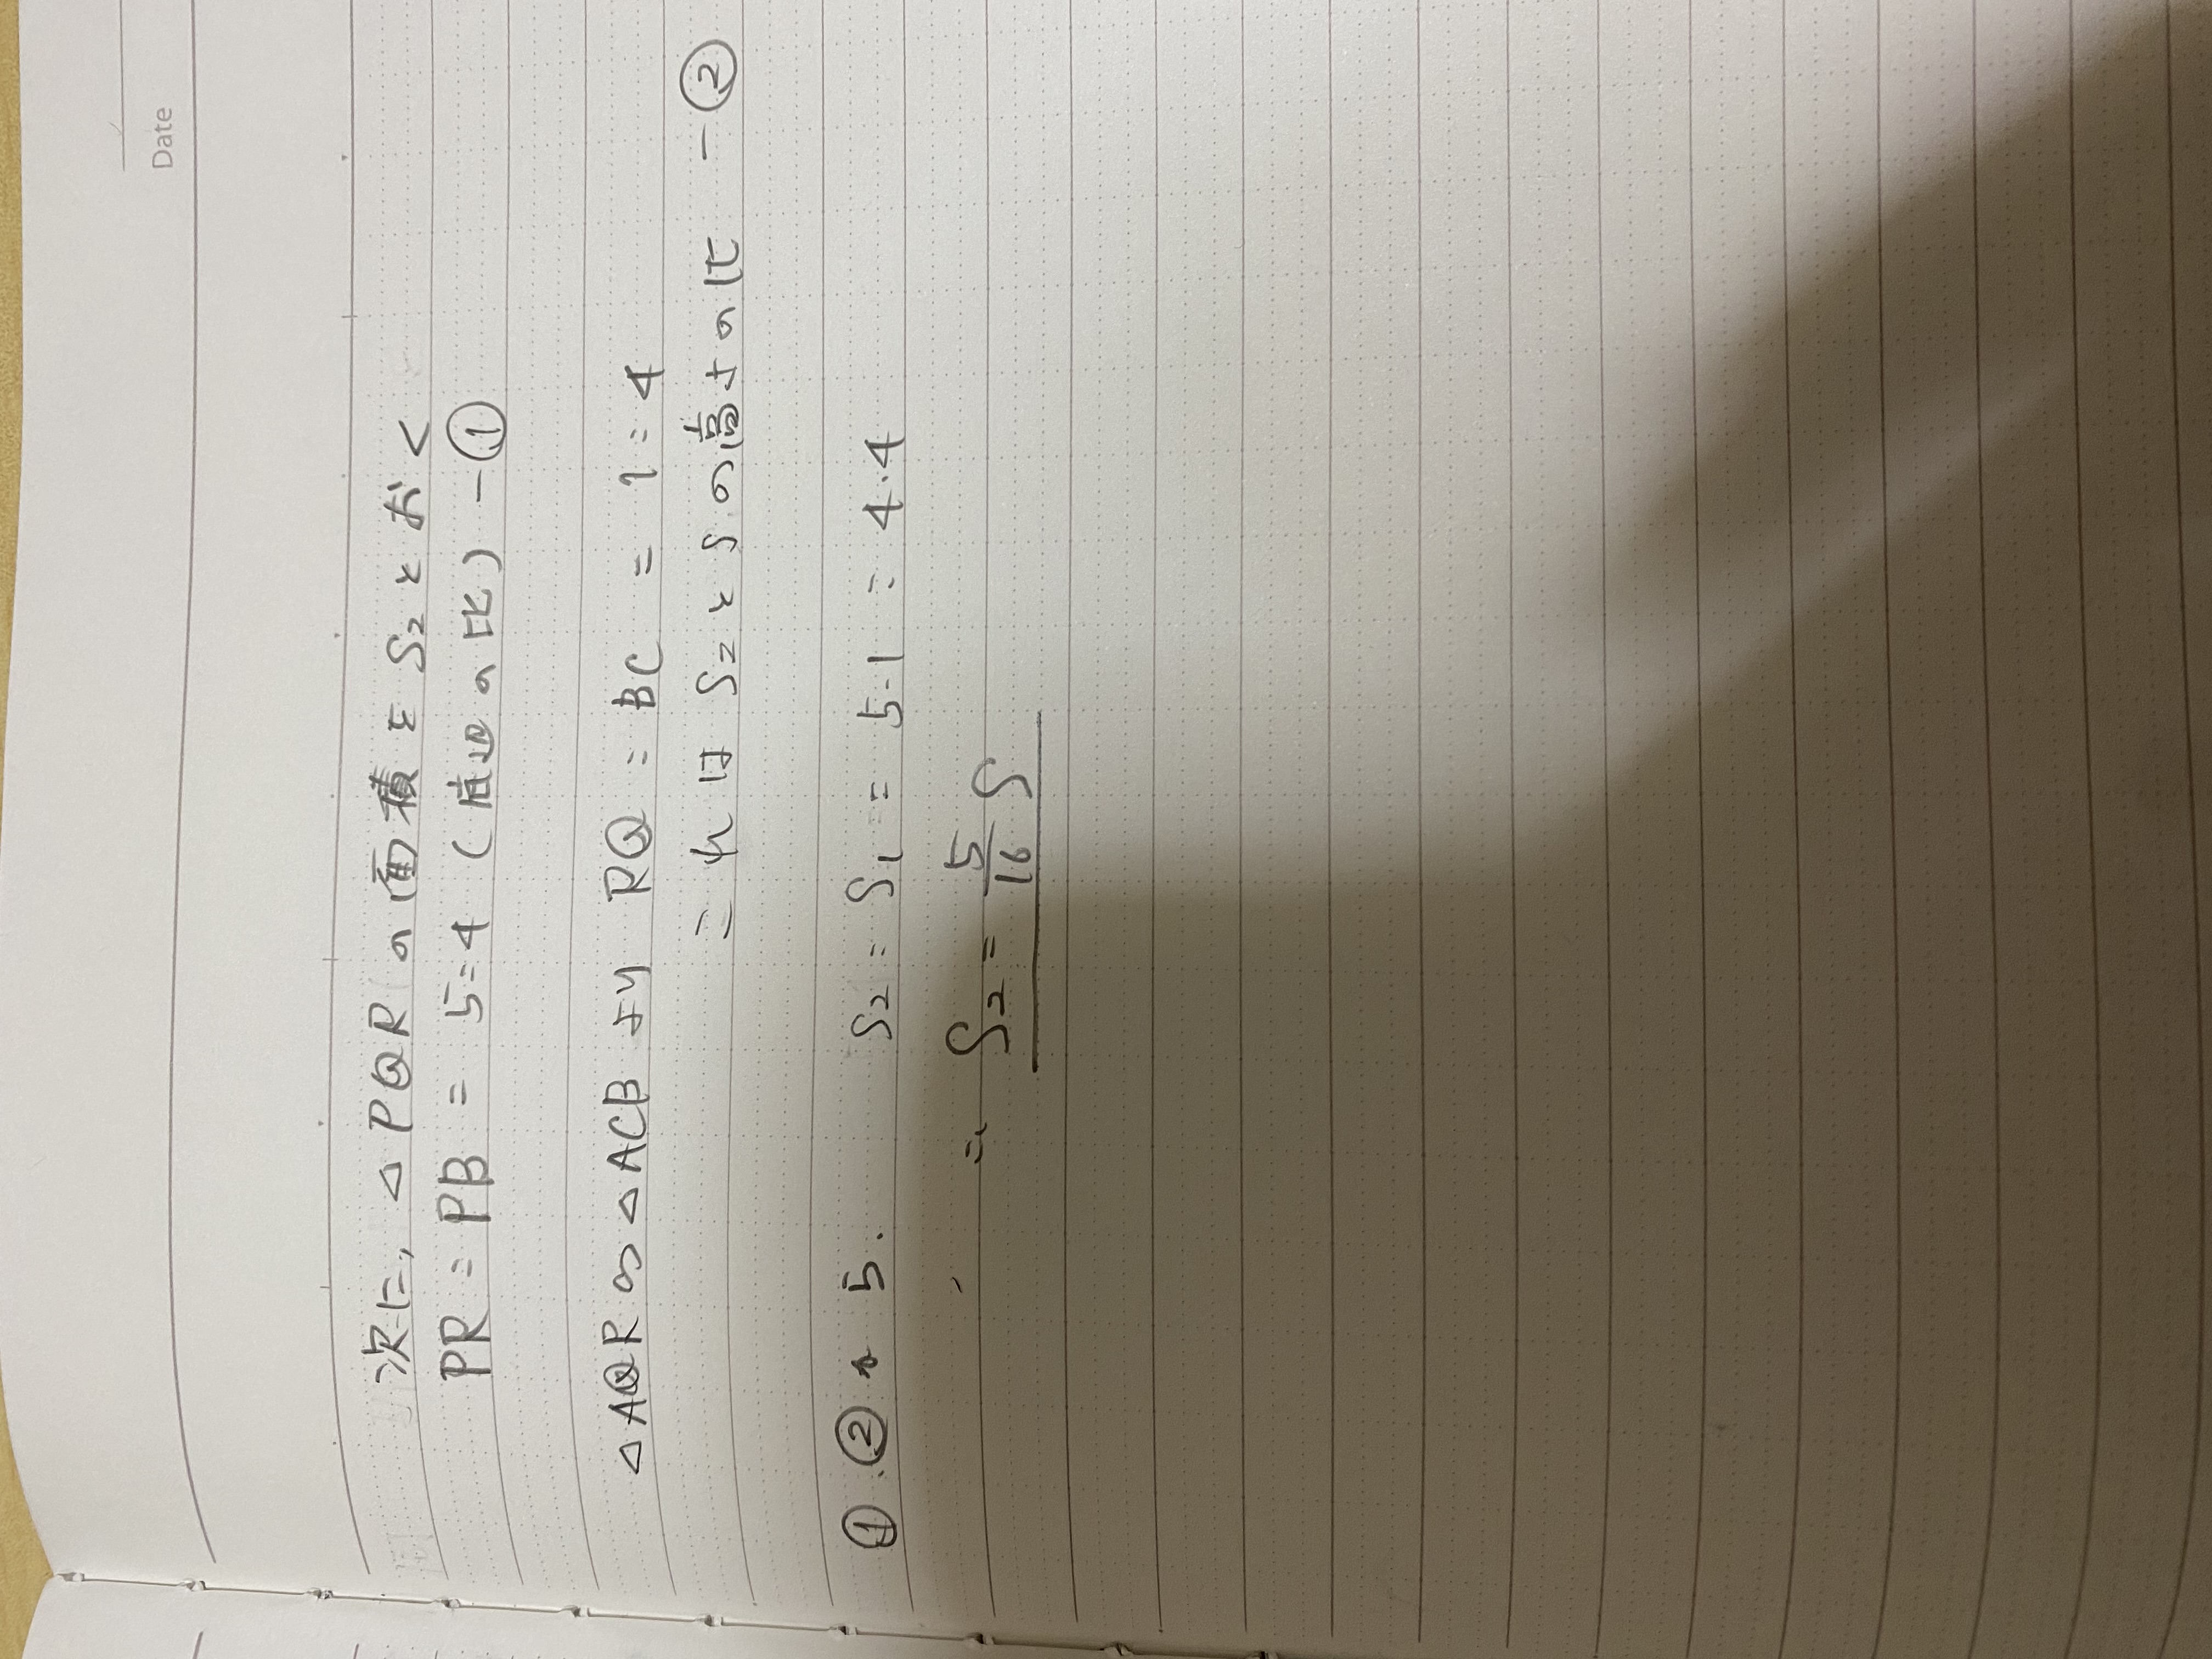 Date
次に, △PQRの面積をS₂とおく
PR:PB = 5:4 (底辺の比) -①
△AQR∽△ACB より RQ:BC = 1:4
これは S₂とSの高さの比 -②
①.②から. S₂:S₁ = 5·1:4·4
∴ S₂ = 5/16 S